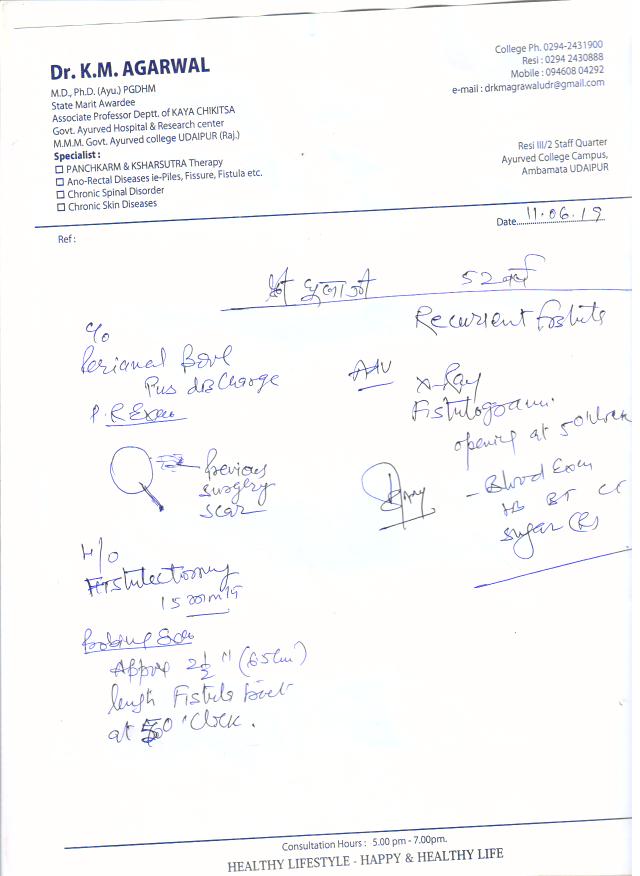 Dr. K.M. AGARWAL
M.D., Ph.D. (Ayu.) PGDHM
State Marit Awardee
Associate Professor Deptt. of KAYA CHIKITSA
Govt. Ayurved Hospital & Research center
M.M.M. Govt. Ayurved college UDAIPUR (Raj.)
Specialist :
PANCHKARM & KSHARSUTRA Therapy
Ano-Rectal Diseases ie-Piles, Fissure, Fistula etc.
Chronic Spinal Disorder
Chronic Skin Diseases
College Ph. 0294-2431900
Resi : 0294 2430888
Mobile : 094608 04292
e-mail : drkmagrawaludr@gmail.com
Resi III/2 Staff Quarter
Ayurved College Campus,
Ambamata UDAIPUR
Date 11.06.19
Ref :
श्री 52 वर्ष
Recurrent
C/o
Perianal
Pus discharge
P.R Exam
Previous
surgery
scar
H/o
Fistulectomy
15
Probing Exam
Approx 2½" (6.5cm)
length Fistula
at 5 O'Clock.
Adv
X-Ray
Fistulogram.
opening at 5 O'clock
- Blood Exam
HB BT CT
sugar (R)
Consultation Hours : 5.00 pm - 7.00pm.
HEALTHY LIFESTYLE - HAPPY & HEALTHY LIFE